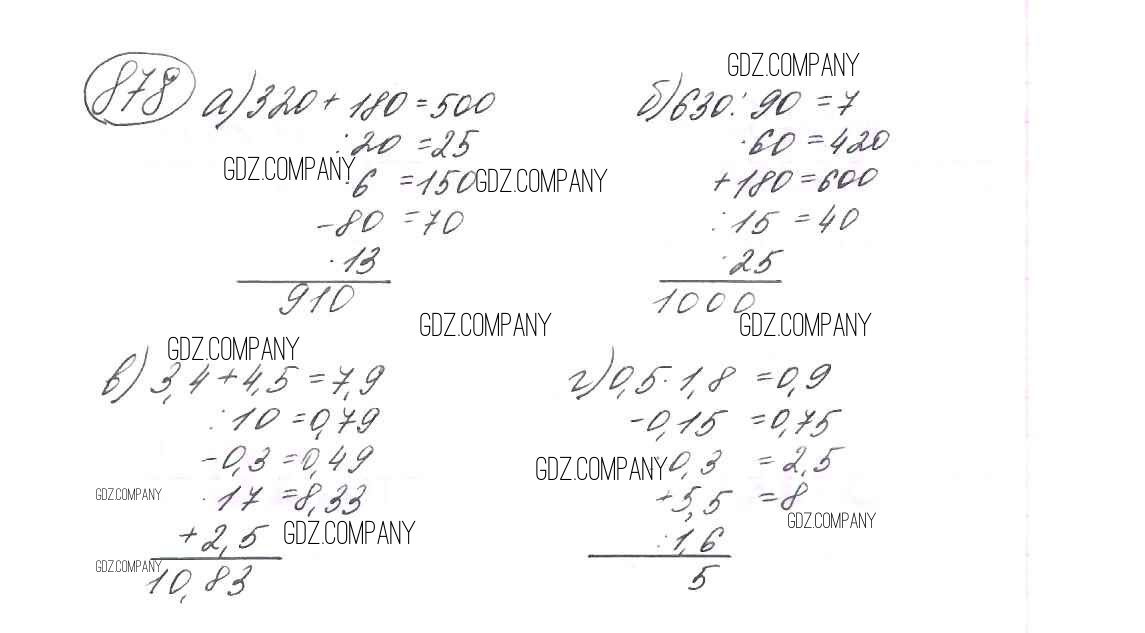 878
GDZ.COMPANY
а) 320 + 180 = 500
б) 630 : 90 = 7
: 20 = 25
· 60 = 420
GDZ.COMPANY
· 6 = 150
GDZ.COMPANY
+ 180 = 600
- 80 = 70
: 15 = 40
· 13
· 25
910
1000
GDZ.COMPANY
GDZ.COMPANY
GDZ.COMPANY
в) 3,4 + 4,5 = 7,9
г) 0,5 · 1,8 = 0,9
: 10 = 0,79
- 0,15 = 0,75
- 0,3 = 0,49
GDZ.COMPANY
0,3 = 2,5
GDZ.COMPANY
· 17 = 8,33
+ 5,5 = 8
GDZ.COMPANY
+ 2,5
GDZ.COMPANY
: 1,6
GDZ.COMPANY
10,83
5